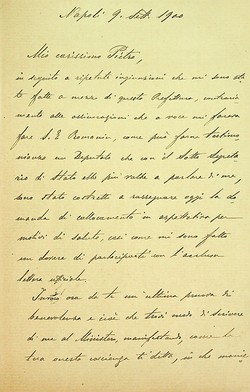 Napoli 9. Sett. 1900
Mio carissimo Pietro,
in seguito a ripetute ingiunzioni che mi sono sta-
te fatte a mezzo di questo Prefettura, contraria-
mente alle assicurazioni che a voce mi faceva
fare S. E. Romanin, come può farne testimo-
nianza un Deputato che con il Sotto Segreta-
rio di Stato ebbe più volte a parlare di me,
sono stato costretto a rassegnare oggi la do-
manda di collocamento in aspettativa per
motivi di salute, così come mi sono fatto
un dovere di parteciparti con l'acclusa
lettera ufficiale.
Invoco ora da te un'ultima prova di
benevolenza e cioè che trovi modo di scrivere
di me al Ministero, manifestando, come la
tua onesta coscienza ti detta, in che manie